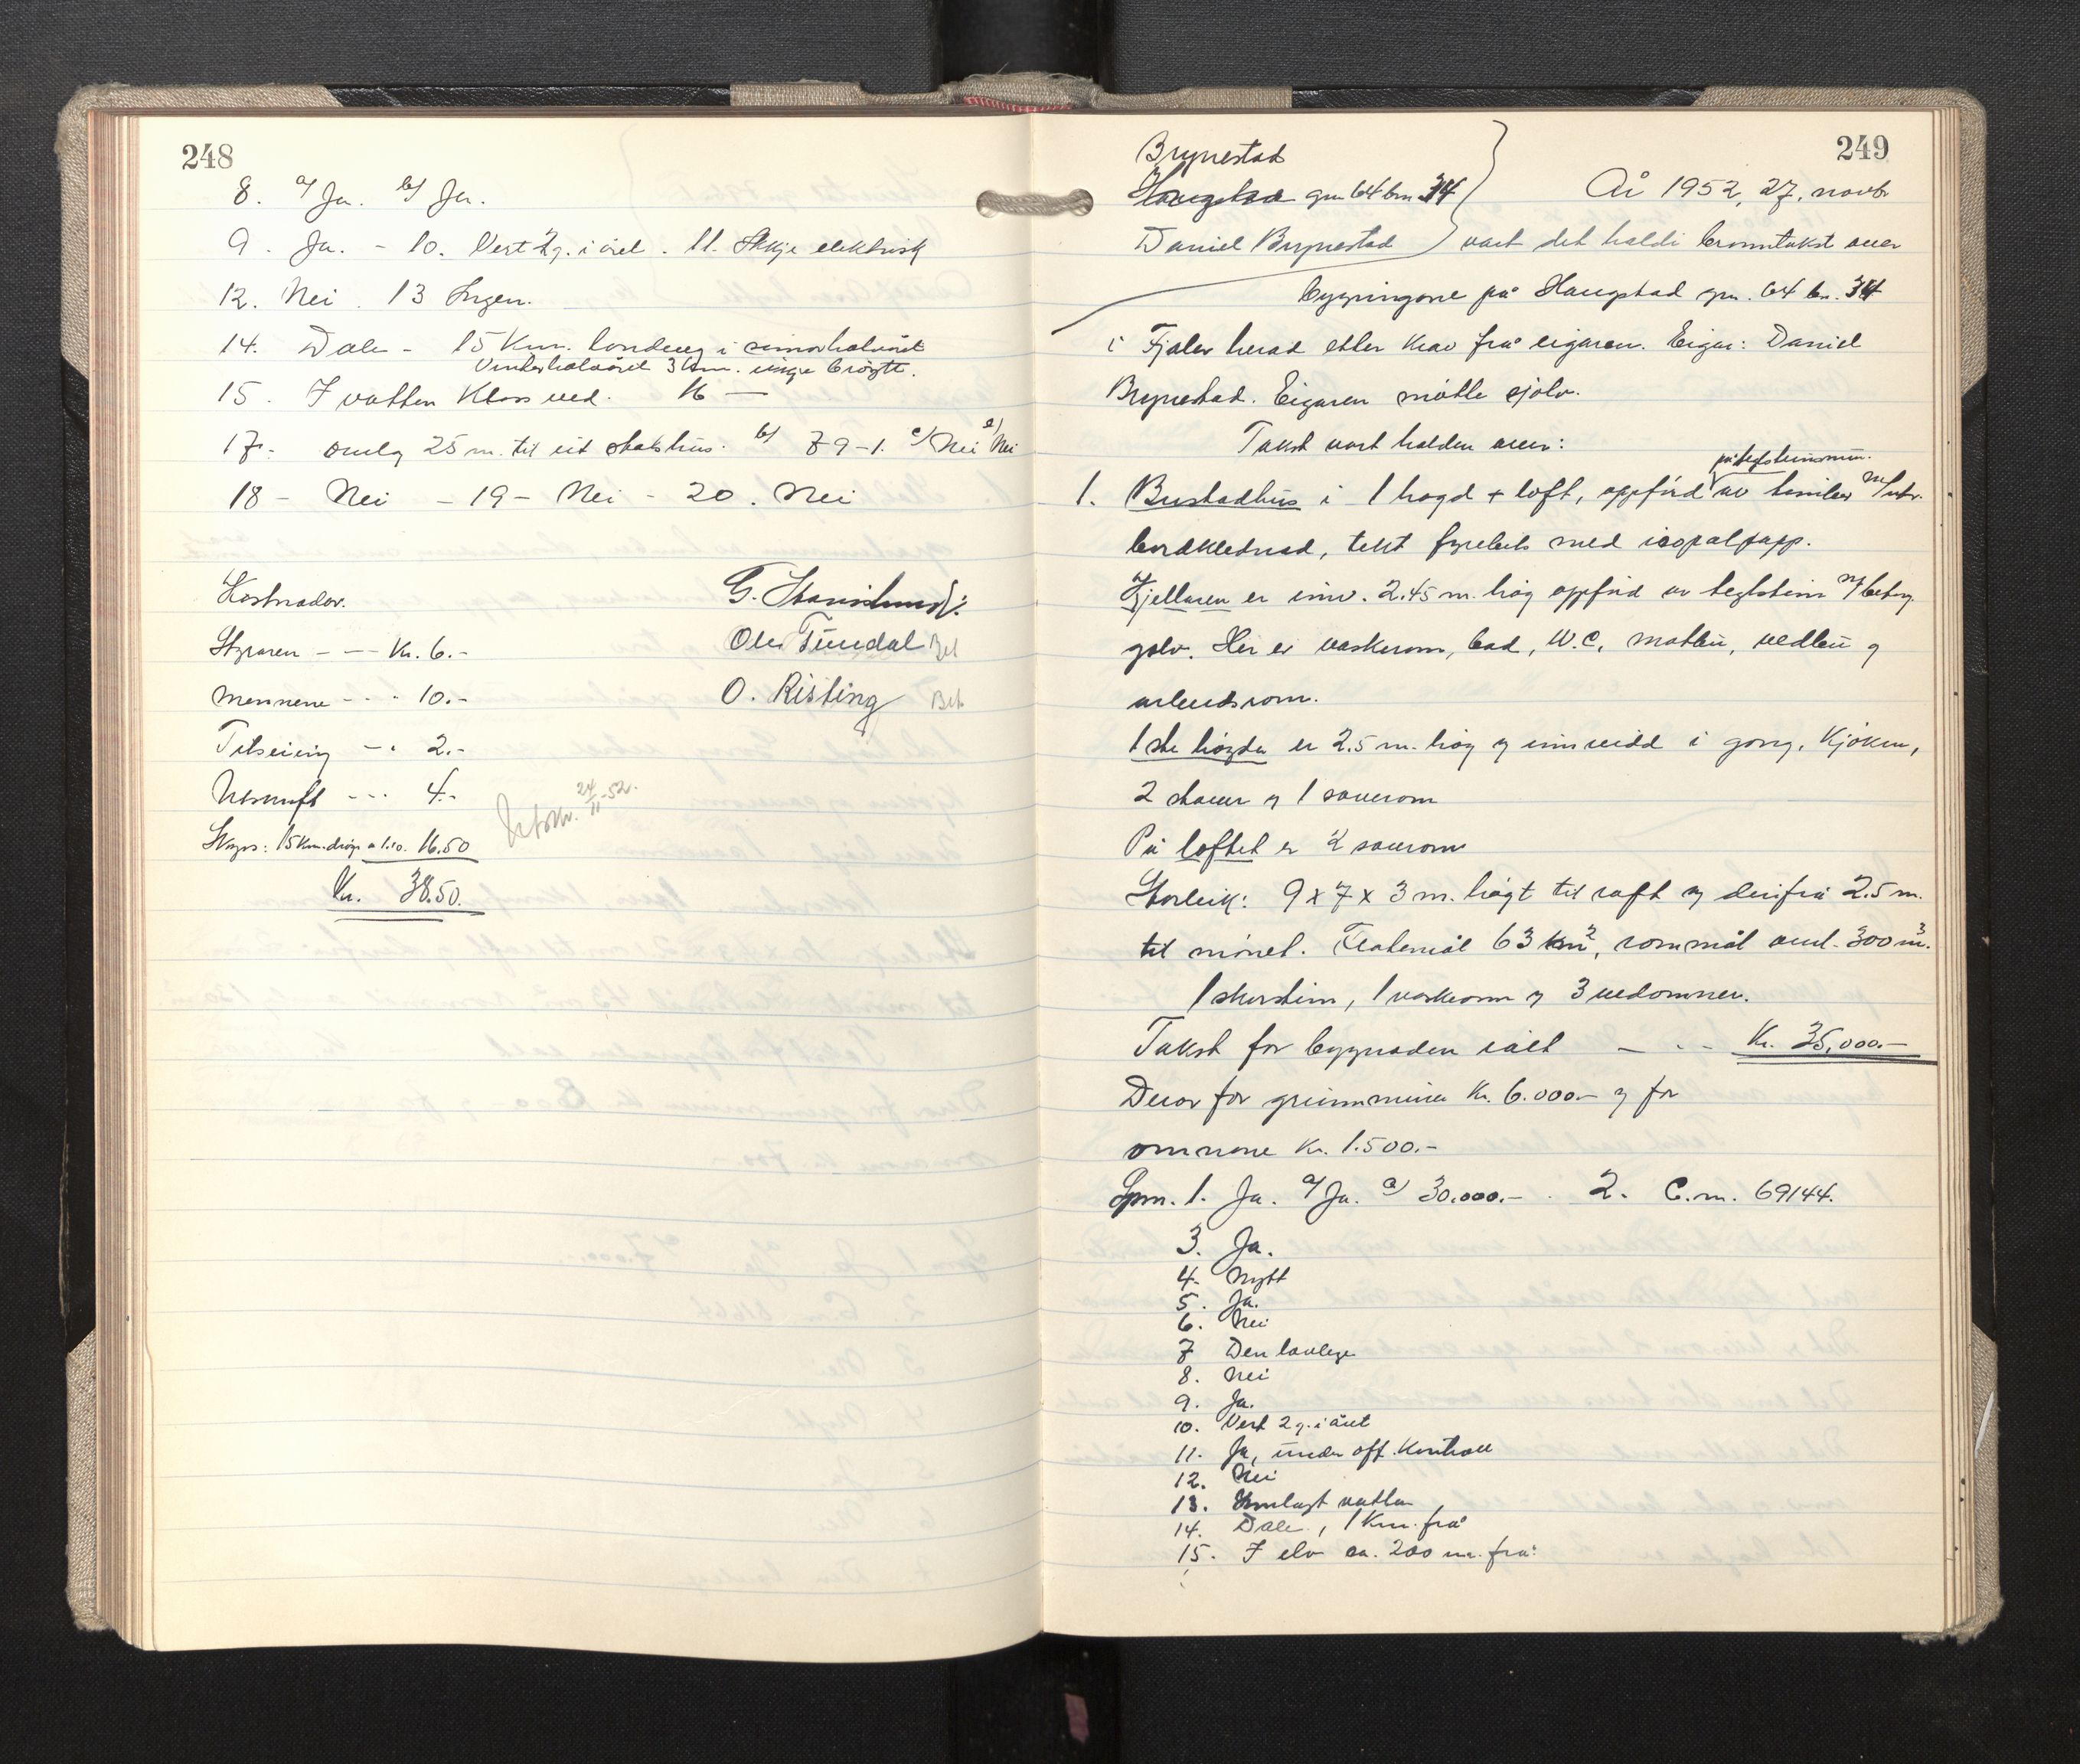 248
8. a/ Ja. b/ Ja.
9. Ja. - 10. Vert 2 g. i året. 11. Ikkje elektrisk
12. Nei. 13 Ingen.
14. Dale - 15 km. landveg i sumarhalvåret
Vinterhalvåret 3 km. ikkje brøytt.
15. I vatten Kloss ved. 16 —
17. omlag 25 m. til eit stabshus. b/ 79-1. c/ Nei d/ Nei
18 - Nei - 19 - Nei - 20. Nei
Kostnader.
Styraren - - - Kr. 6.-
Mennene - - - 10.-
Tilseiing - . 2.-
Utskrift - - - 4.-
Skyss: 15 km. drosje a 1.10. 16.50
Kr. 38.50.
Ole Tundal Bet
O. Risting Bet
Utskr. 24/11-52.
249
Brynestad
Haugstad gnr 64 bnr 34
Daniel Brynestad
År 1952, 27. novbr
vart det haldi branntakst over
bygningane på Haugstad gnr. 64 bn. 34
i Fjaler herad etter krav frå eigaren. Eigar: Daniel
Brynestad. Eigaren møtte sjølv.
Takst vart halden over:
på teglsteinsmur.
1. Bustadhus i 1 høgd + loft, oppførd av tømmer m/utv.
bordklednad, tekt fyrebels med isopalpapp.
a/ Kjellaren er innv. 2.45 m. høg oppførd av teglstein m/betong
golv. Her er vaskerom, bad, W.C, matbu, vedbu og
arbeidsrom.
1ste høgda er 2.5 m. høg og innreidd i gong, kjøken,
2 stover og 1 soverom
På loftet er 2 soverom
Storleik: 9 x 7 x 3 m. høgt til raft og derifrå 2.5 m.
til mønet. Flatemål 63 m², rommål oml. 300 m³.
1 skorstein, 1 vaskeomn og 3 vedomner.
Takst for bygnaden ialt - - - Kr. 35,000.-
Derav for grunnmuren Kr. 6.000.- og for
omnane Kr. 1.500.-
Spm. 1. Ja. a/ Ja. a/ 30.000.- . 2. C.m. 69144.
3. Ja.
4. Nytt
5. Ja.
6. Nei
7 Den lovlege
8. Nei
9. Ja.
10. Vert 2 g. i året
11. Ja, under off. kontroll
12. Nei
13. Innlagt vatten
14. Dale, 1 km. frå
15. I elv ca. 200 m. frå.